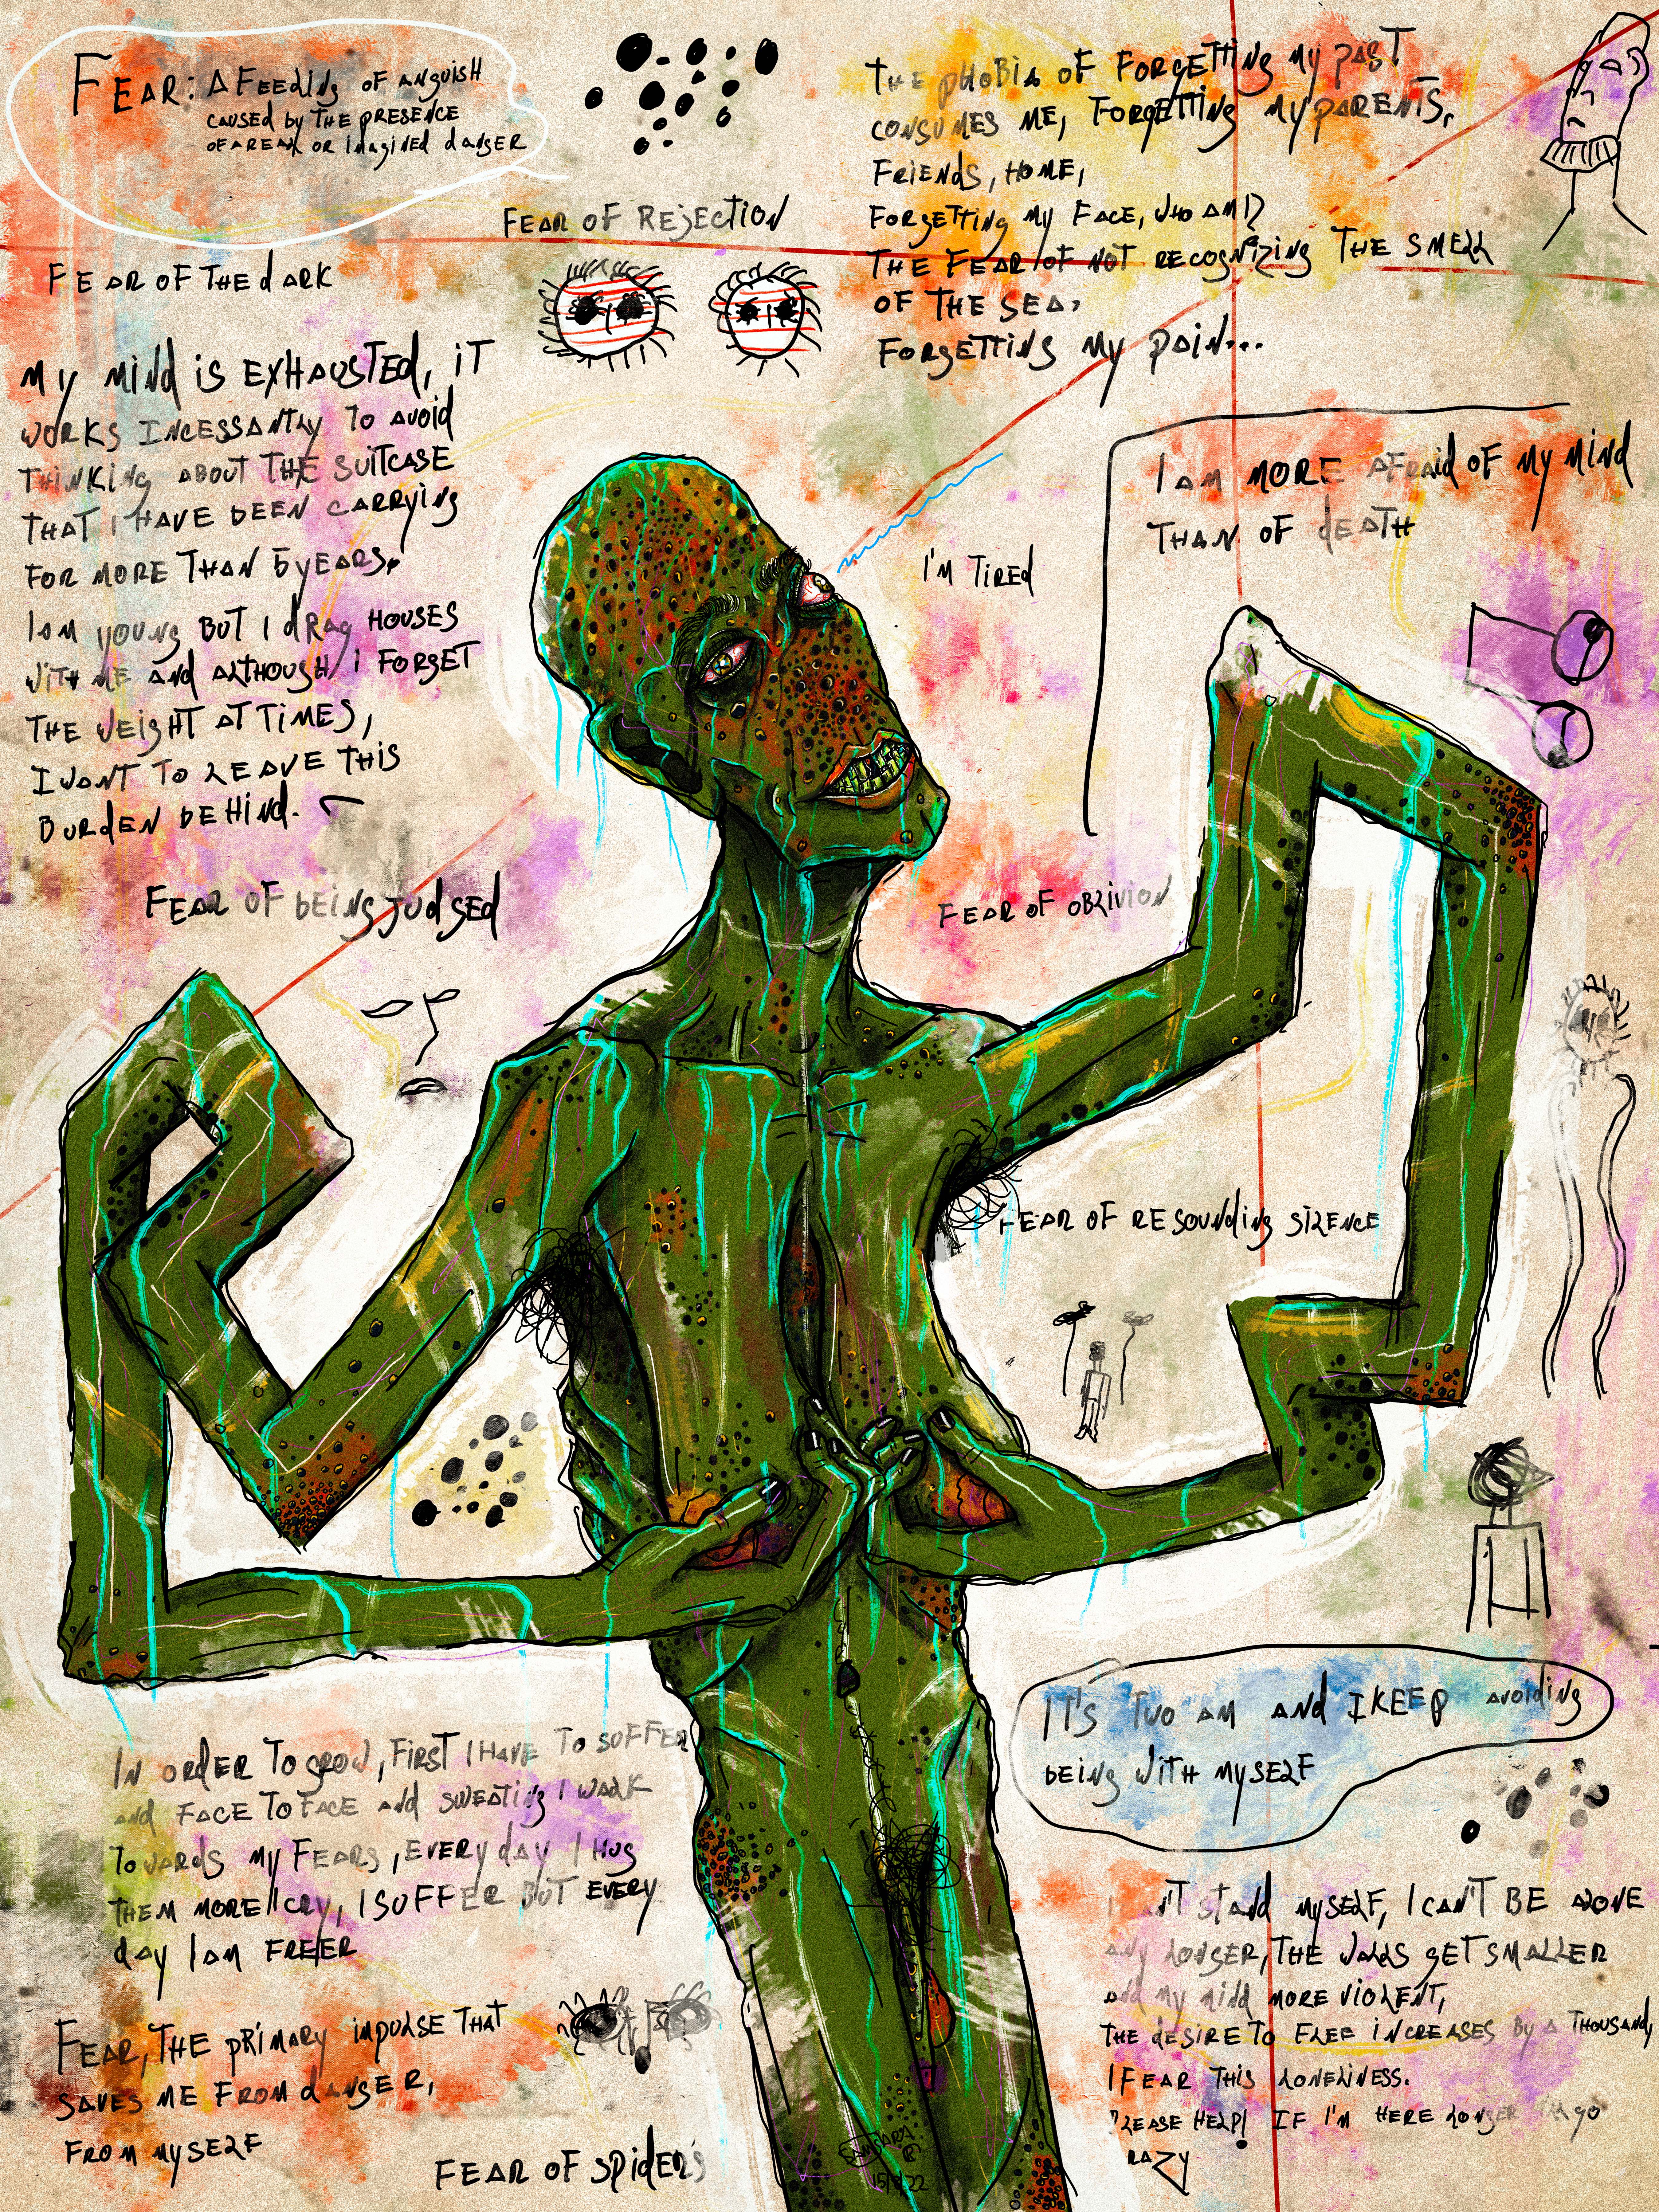 FEAR: A FEELING OF ANGUISH
CAUSED by THE PRESENCE
OF A REAL OR imAgiNEd dANgER
FEAR OF REjECTiON
FEAR OF THE dARK
THE pHOBiA OF FORgETTiNg My pAST
CONSUMES ME, FORgETTiNg My pARENTS,
FRiENdS, HOME,
FORgETTiNg My FACE, WHO AM I?
THE FEAR OF NOT RECOgNiZiNg THE SMELL
OF THE SEA,
FORgETTiNg My pAiN...
My MiNd iS EXHAUSTEd, iT
WORKS INCESSANTLy TO AVOid
THiNKiNg ABOUT THE SUiTCASE
THAT I HAVE bEEN CARRyiNg
FOR MORE THAN 5 yEARS,
I AM yOUNg BUT I dRAg HOUSES
WiTH ME ANd ALTHOUgH I FORgET
THE WEigHT AT TiMES,
I WANT TO LEAVE THiS
BURdEN bEHiNd.
I AM MORE AFRAid OF My MiNd
THAN OF dEATH
I'M TiREd
FEAR OF bEiNg JUdgEd
FEAR OF OBLiViON
FEAR OF RESOUNdiNg SiLENCE
IT'S TWO AM ANd I KEEp AVOidiNg
bEiNg WiTH MySELF
IN ORdER TO gROW, FiRST I HAVE TO SUFFER
ANd FACE TO FACE ANd SWEATiNg I WALK
TOWARdS My FEARS, EVERy dAy I HUg
THEM MORE I CRy, I SUFFER BUT EVERy
dAy I AM FREER
FEAR, THE pRiMARy impULSE THAT
SAVES ME FROM dANgER,
FROM MySELF
FEAR OF SpidERS
STANd MySELF, I CAN'T BE ALONE
ANy LONgER, THE WALLS gET SMALLER
ANd My MiNd MORE ViOLENT,
THE dESiRE TO FLEE iNCREASES By A THOUSANd,
I FEAR THiS LONELiNESS.
PLEASE HELp! IF I'M HERE LONgER gO
RAZy